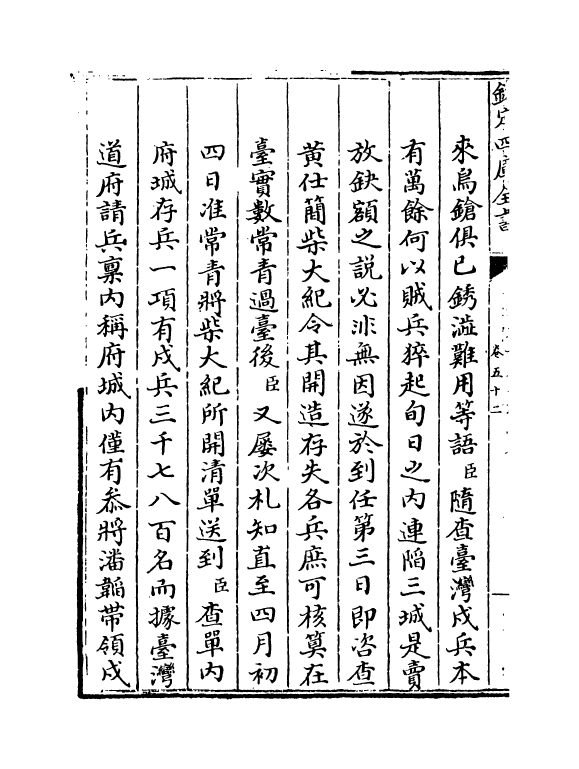 欽定四庫全書
卷五十二
來鳥鎗俱已銹澁難用等語臣隨查臺灣戍兵本
有萬餘何以賊兵猝起旬日之内連陷三城是賣
放缺額之說必非無因遂於到任第三日即咨查
黄仕簡柴大紀令其開造存失各兵庶可核算在
臺實數常青過臺後臣又屢次札知直至四月初
四日准常青將柴大紀所開清單送到臣查單内
府城存兵一項有戍兵三千七八百名而據臺灣
道府請兵稟内稱府城内僅有叅將潘韜带領戍